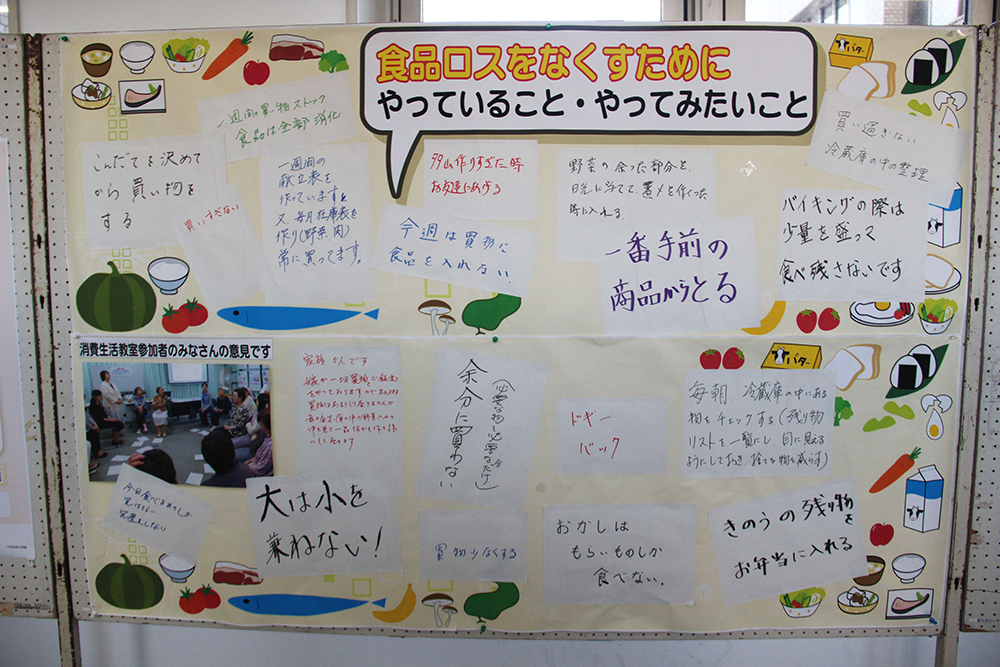 食品ロスをなくすために
やっていること・やってみたいこと
バター
一週間の買い物ストック
食品は全部消化
こんだてを決めて
から買い物を
する
買いすぎない
一週間の
献立表を
作っています
又、毎月在庫表を
作り(野菜、肉)
常に買ってます。
沢山作りすぎた時
お友達にあげる
今週は買物に
食品を入れない
野菜の余った部分を、
日光に当てて煮〆を作くった
時に入れる
一番手前の
商品からとる
買い過ぎない
冷蔵庫の中の整理
バイキングの際は
少量を盛って
食べ残さないです
消費生活教室参加者のみなさんの意見です
家族
余分に買わない
(必要な物を必要な分だけ)
ドギー
バック
バター
毎朝 冷蔵庫の中にある
物をチェックする(残り物
リストを一覧にし、目に見える
ようにしておき、捨てる物を減らす)
今日食べるものしか
買はない
大は小を
兼ねない!
買物少なくする
おかしは
もらいものしか
食べない。
きのうの残り物を
お弁当に入れる